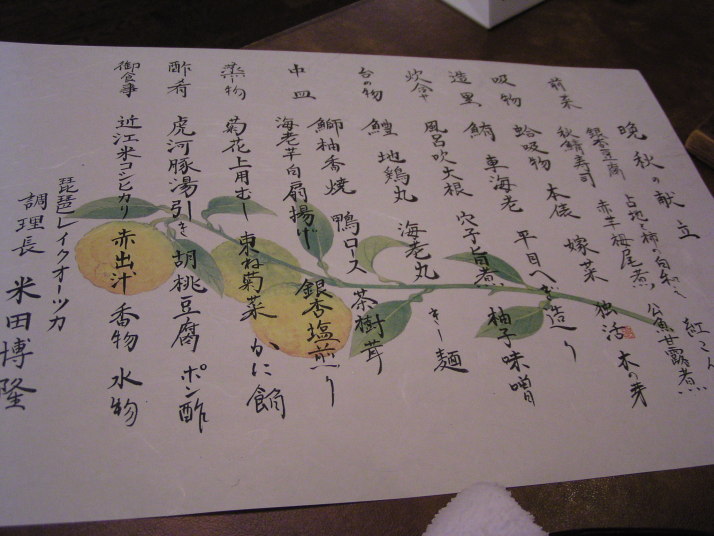 晩秋の献立
前菜 銀杏豆腐 占地と柿の白和え 紅こん
秋鯖寿司 赤芋梅尾煮 公魚甘露煮
吸物 蛤吸物 木俵 嫁菜 独活 木の芽
造里 鮪 車海老 平目へぎ造り
炊合せ 風呂吹大根 穴子旨煮 柚子味噌
台の物 鱧 地鶏丸 海老丸 きし麺
中皿 鰤柚香焼 鴨ロース 茶樹茸
海老芋白扇揚げ 銀杏塩煎り
蒸物 菊花上用むし 束ね菊菜 かに餡
酢肴 虎河豚湯引き 胡桃豆腐 ポン酢
御食事 近江米コシヒカリ 赤出汁 香物 水物
琵琶レイクオーツカ
調理長 米田博隆